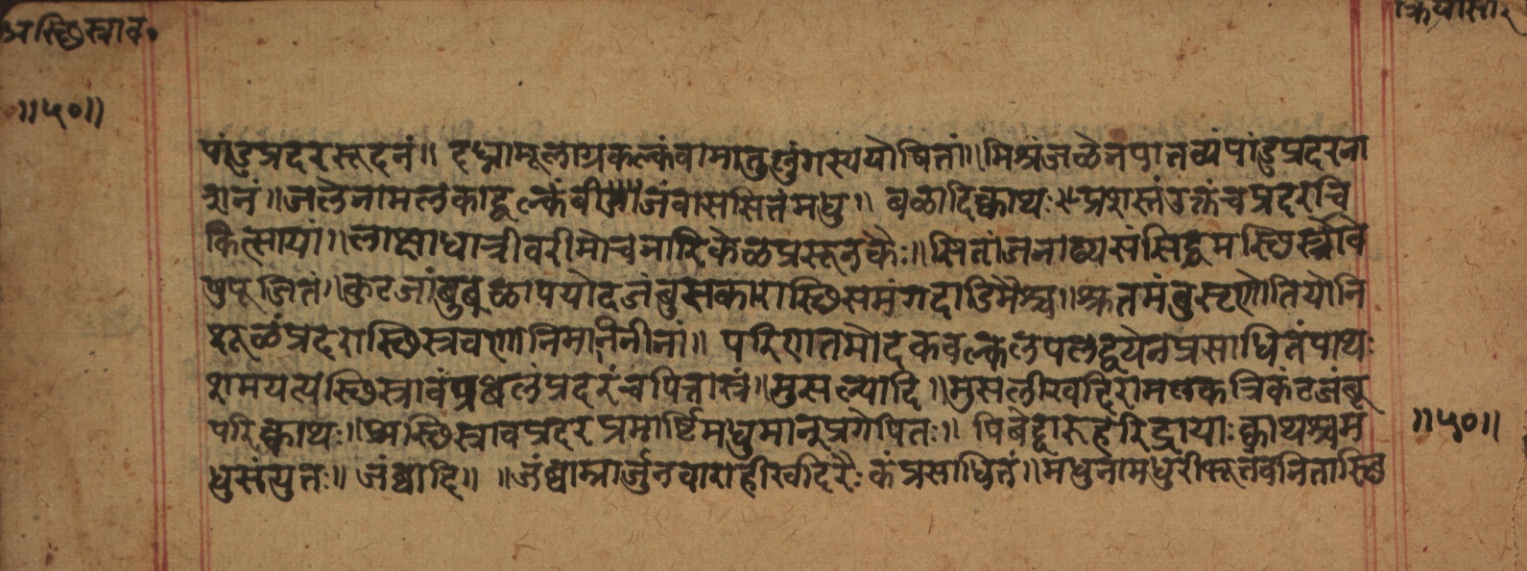 अस्थिस्त्राव॰
क्रियासार
॥५०॥
पांडुप्रदरसूदनं॥ दध्नामूलाग्रकल्कंवामातुलुंगस्ययोषितां॥मिश्रंजळेनपातव्यंपांडुप्रदरना
शनं॥जलेनामलकाद्कल्कंबीजंवाससितंमधु॥ बळादिक्वाथः प्रशस्तंउक्तंचप्रदरचि
कित्सायां॥लाक्षाधात्रीवरीमोचनारिकेळप्रसूनकैः॥सितांजनाढ्यसंसिद्धमस्थिस्त्रावे
षुपूजितं॥कुटजांबुबळापयोदजंबुसकारास्थिसमंगदाडिमैश्च॥श्रृतमंबुस्तृणोतियोनि
शूळंप्रदरास्थिस्त्रवणोनिमानिनीनां॥ परिणतमोदकवल्कलपलद्वयेनप्रसाधितंपाथः
शमयत्यस्थिस्त्रावंप्रबलंप्रदरंचपित्तास्त्रं॥मुसल्यादि॥मुसलीखदिरामणकत्रिकंटजंबू
वरिक्वाथः॥अस्थिस्त्रावप्रदरप्रमार्ष्टिमधुमान्प्रगेपितः॥ पिबेद्दारुहरिद्रायाःक्वाथश्चम
धुसंयुतः॥ जंब्वादि॥ ॥जंब्वाम्रार्जुनवाराहीखदिरैः कंप्रसाधितं॥मधुनामधुरीकृतंवनितास्थि
॥५०॥